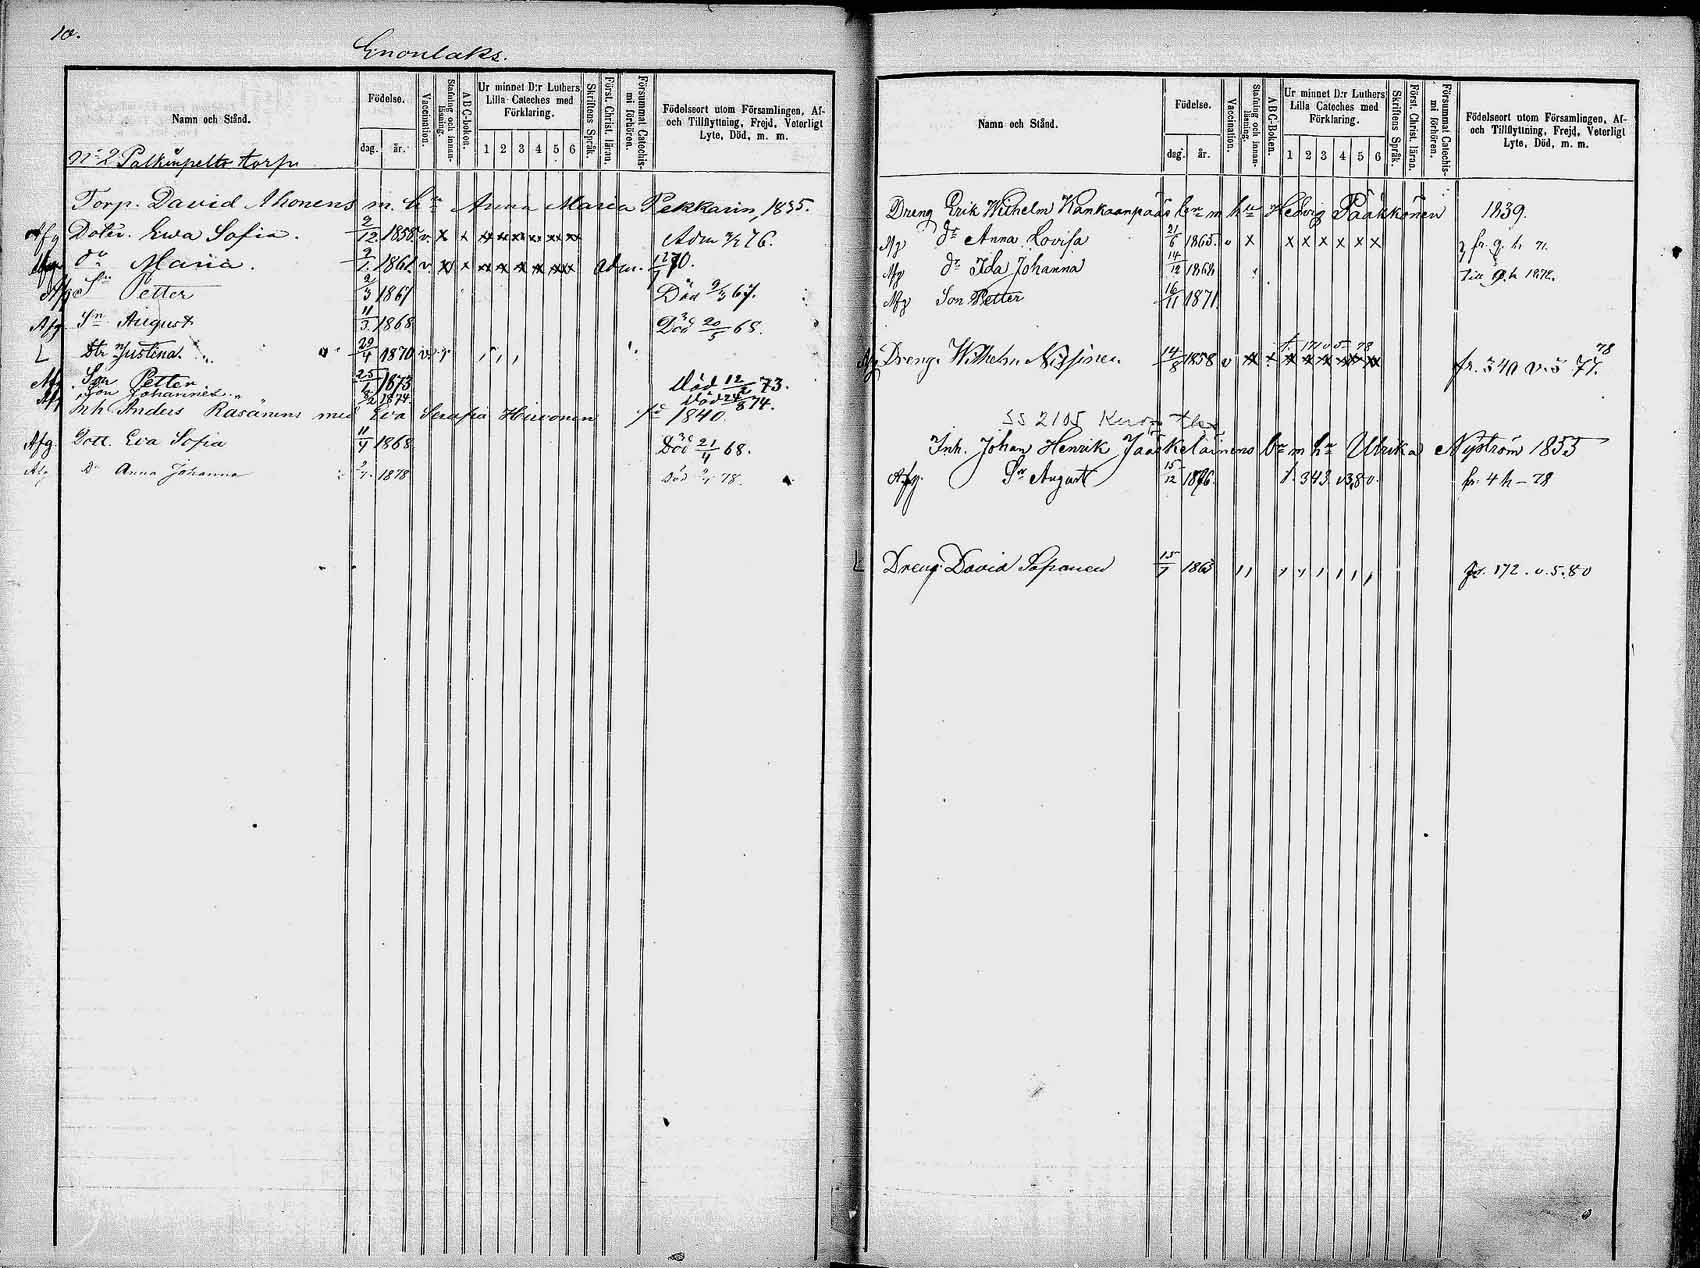 10.
Enonlaks.
Namn och Stånd.
Födelse.
dag. år.
Vaccination.
Stafning och innan-läsning.
A B C-boken.
Ur minnet D:r Luthers Lilla Cateches med Förklaring.
1 2 3 4 5 6
Skriftens Språk.
Först. Christ. läran.
Försummat Catechis-mi förhören.
Födelseort utom Församlingen, Af- och Tillflyttning, Frejd, Veterligt Lyte, Död, m. m.
No 2 torp
Torp. David Ahonens m. hu Anna Maria Pekkarin, 1835.
Afg Doter. Ewa Sofia. 2/12 1858 v. x x x x x x x x Adm 76.
dr Maria. 2/1 1861 v. x x x x x x x x adm. 12/1 70.
Afg Sn Petter 2/3 1867 Död 9/3 67.
Afg Sn August 11/3 1868 Död 20/5 68.
L Dtr Justina. 29/4 1870 v.
Afg. Son Petter 25/1 1873 Död 12/2 73.
Afg Son Johannes 1874 Död 24/8 74.
Inh Anders Räsänens med Eva Serafia Hirvonen fd 1840.
Afg. Dott. Eva Sofia 11/4 1868 Död 21/4 68.
Afg Dr Anna Johanna 1878 Död 78.
Namn och Stånd.
Födelse.
dag. år.
Vaccination.
Stafning och innan-läsning.
A B C-Boken.
Ur minnet D:r Luthers Lilla Cateches med Förklaring.
1 2 3 4 5 6
Skriftens Språk.
Först. Christ. läran.
Försummat Catechis-mi förhören.
Födelseort utom Församlingen, Af- och Tillflyttning, Frejd, Veterligt Lyte, Död, m. m.
Dreng Erik Wilhelm Kankaanpääs m hu Hedvig Pääkkönen 1839.
Afg dr Anna Lovisa 21/6 1865. v x x x x x x x fr. 9. h 71.
Afg dr Ida Johanna 14/12 1868 Till 9. h 1872.
Afg Son Petter 16/11 1871
f. 171 v 5 78
Afg Dreng. Wilhelm 14/8 1858 v x x x x x x x fr. 340 v. 5 77. 78
SS 2105
Inh. Johan Henrik Jääskeläinens m hu Ulrika Nyström 1855
Afg. Sn August 15/12 1876. f. 343 v 3,80. fr. 4 h - 78
L Dreng David Soponen 15/7 1863 fr. 172. v. 5. 80